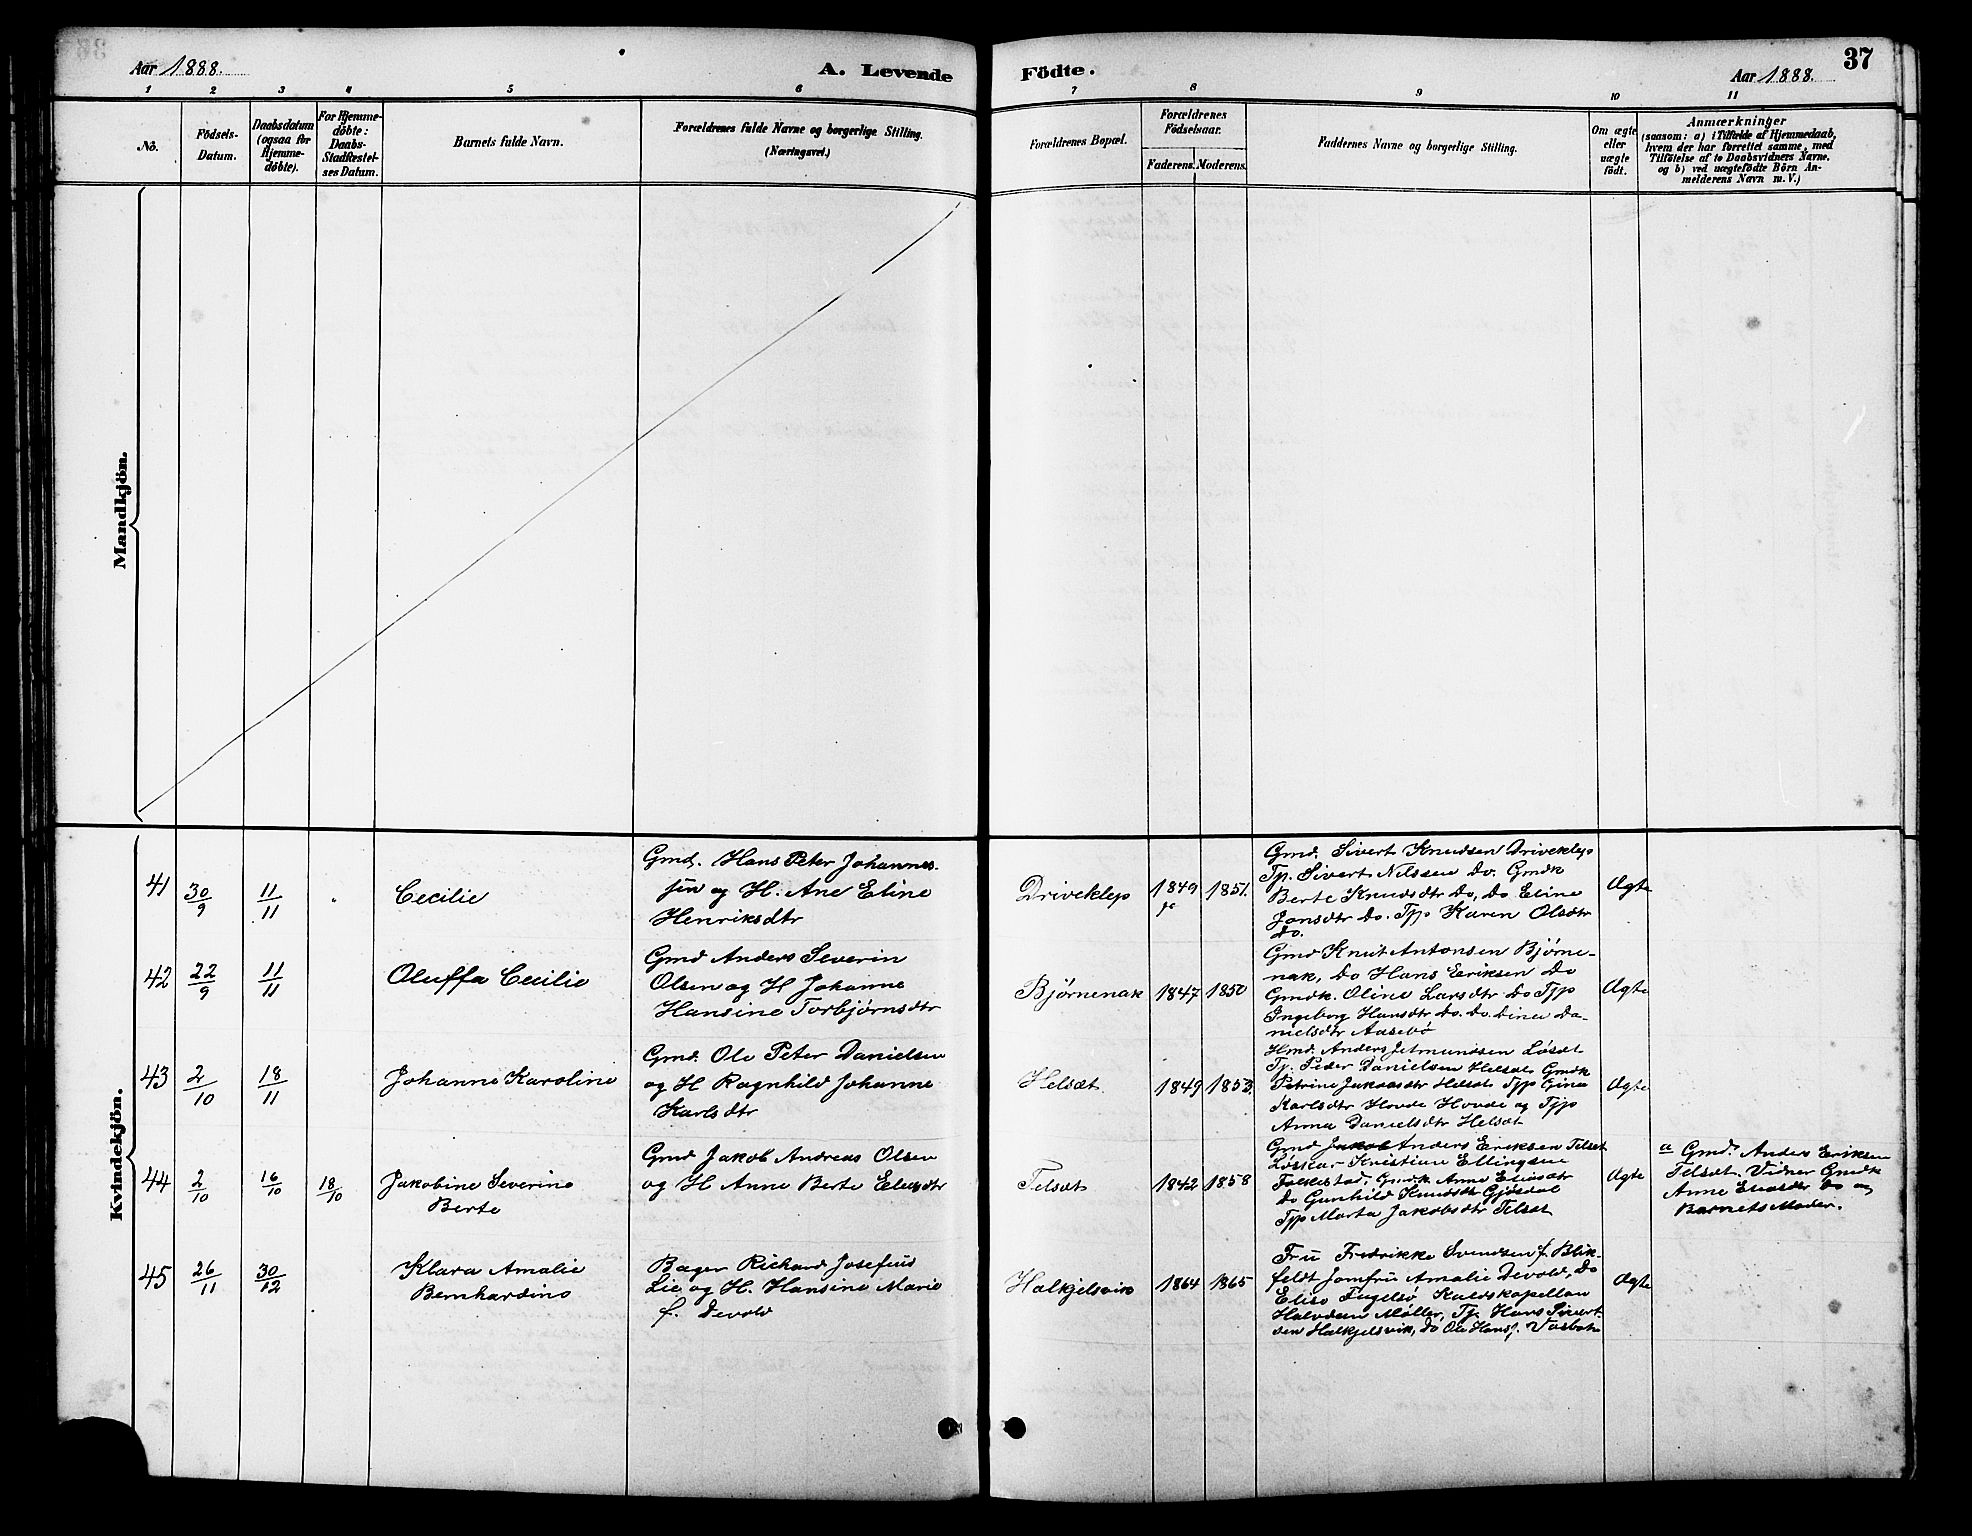 37
Aar 1888.
A. Levende
Födte.
Aar 1888.
1
2
3
4
5
6
7
8
9
10
11
No.
Födsels-
Datum.
Daabsdatum
(ogsaa for
Hjemme-
döbte).
For Hjemme-
döbte:
Daabs-
Stadfæstel-
ses Datum.
Barnets fulde Navn.
Forældrenes fulde Navne og borgerlige Stilling.
(Næringsvei.)
Forældrenes Bopæl.
Forældrenes
Födselsaar.
Faderens.
Moderens.
Faddernes Navne og borgerlige Stilling.
Om ægte
eller
uægte
födt.
Anmærkninger
(saasom: a) i Tilfælde af Hjemmedaab,
hvem der har forrettet samme, med
Tilföielse af to Daabsvidners Navne.
og b) ved uægtefödte Börn An-
melderens Navn m. V.)
Mandkjön.
Kvindekjön.
41
30/9
11/11
Cecilie
Gmd. Hans Peter Johannes-
sen og H. Ane Eline
Henriksdtr
Driveklep
1849
1851.
Gmd. Sivert Knudsen Driveklep
Tjp. Sivert Nilssen Do. Gmdk
Berte Knudsdtr Do, Do Eline
Jonsdtr Do. Tjp Karen Olsdtr
Do.
Ægte
42
22/9
11/11
Oluffa Cecilie
Gmd Anders Severin
Olsen og H Johanne
Hansine Torbjørnsdtr
Bjørnenak
1847
1850
Gmd Knut Antonsen Bjørne-
nak, Do Hans Eriksen Do
Gmdk. Oline Larsdtr Do Tjp
Ingeborg Hansdtr Do. Do. Dina Da-
nielsdtr Aasebø
Ægte
43
2/10
18/11
Johanne Karoline
Gmd. Ole Peter Danielsen
og H Ragnhild Johanne
Karlsdtr
Helsæt
1849
1853.
Hmd. Anders Jetmundsen Løsæt
Tj. Peder Danielsen Helsæt Gmdk
Petrine Jakobsdtr Helsæt Tjp Gina
Karlsdtr Hovde Hovde og Tjp
Anna Danielsdtr Helsæt
Ægte
44
2/10
16/10
18/10
Jakobine Severine
Berte
Gmd Jakob Andreas Olsen
og H Anne Berte Eliasdtr
Telsæt
1842
1858
Gmd Jakob Anders Eriksen Telset
Løskar Kristian Ellingsen
Folkestad, Gmdk Anne Eliasdtr
Do Gunhild Knudsdtr Gjøsdal
Tjp Marta Jakobsdtr Telsæt
Ægte
a Gmd. Anders Eriksen
Telsæt. Vidner Gmdk
Anne Eliasdtr Do og
Barnets Moder.
45
26/11
30/12
Klara Amalie
Bernhardine
Bager Richard Josefius
Lie og H. Hansine Marie
f. Devold
Halkjelsvik
1864
1865
Fru Fredrikke Svendsen f. Blik-
feldt Jomfru Amalie Devold, Do
Elise Fugelsø Kaldskapellan
Halvdan Møller, Tj. Hans Sivert-
sen Halkjelsvik, Do Ole Hansf. Vasbak
Ægte